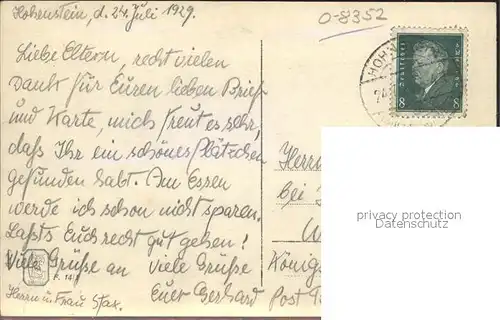 Hohenstein, d. 24. Juli 1929.
O-8352
Liebe Eltern, recht vielen
Dank für Euren lieben Brief
und Karte, mich freut es sehr,
daß Ihr ein schönes Plätzchen
gefunden habt. Am Essen
werde ich schon nicht sparen.
Laßts Euch recht gut gehen!
Viele Grüße an viele Grüße
Herrn u. Frau Stax. Euer Gerhard
8 8
HOH
24
Herrn
bei
Königs
Post
privacy protection
Datenschutz